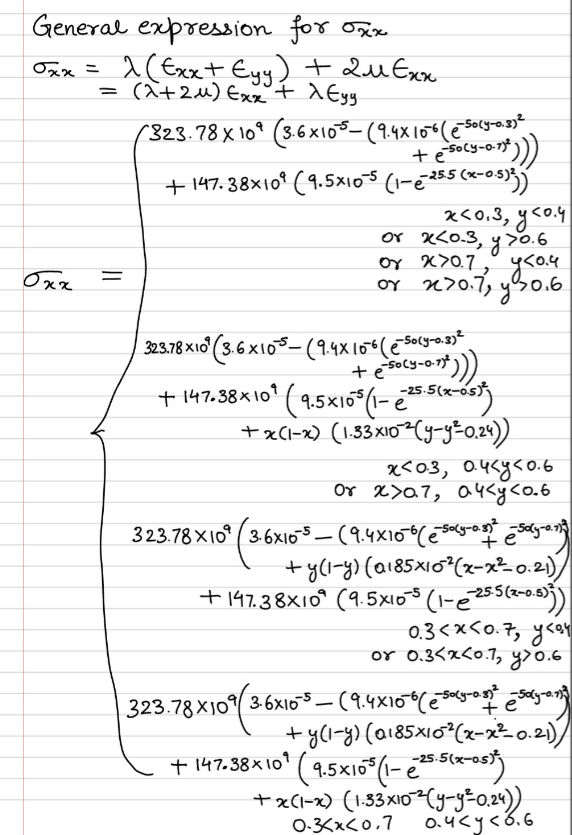 General expression for σxx
σxx = λ(ϵxx + ϵyy) + 2μϵxx
= (λ+2μ) ϵxx + λϵyy
323.78×10⁹ (3.6×10⁻⁵ − (9.4×10⁻⁶(e^-50(y-0.3)²
+ e^-50(y-0.7)²)))
+ 147.38×10⁹ (9.5×10⁻⁵ (1-e^-25.5(x-0.5)²))
x<0.3, y<0.4
or x<0.3, y>0.6
or x>0.7, y<0.4
σxx = or x>0.7, y>0.6
323.78×10⁹(3.6×10⁻⁵ − (9.4×10⁻⁶(e^-50(y-0.3)²
+ e^-50(y-0.7)²)))
+ 147.38×10⁹ (9.5×10⁻⁵(1-e^-25.5(x-0.5)²)
+ x(1-x) (1.33×10⁻²(y-y²-0.24))
x<0.3, 0.4<y<0.6
or x>0.7, 0.4<y<0.6
323.78×10⁹ (3.6×10⁻⁵ − (9.4×10⁻⁶(e^-50(y-0.3)² + e^-50(y-0.7)²)
+ y(1-y) (0.185×10⁻²(x-x²-0.21))
+ 147.38×10⁹ (9.5×10⁻⁵ (1-e^-25.5(x-0.5)²))
0.3<x<0.7, y<0.4
or 0.3<x<0.7, y>0.6
323.78×10⁹(3.6×10⁻⁵ − (9.4×10⁻⁶(e^-50(y-0.3)² + e^-50(y-0.7)²)
+ y(1-y) (0.185×10⁻²(x-x²-0.21))
+ 147.38×10⁹ (9.5×10⁻⁵(1-e^-25.5(x-0.5)²)
+ x(1-x) (1.33×10⁻²(y-y²-0.24))
0.3<x<0.7 0.4<y<0.6